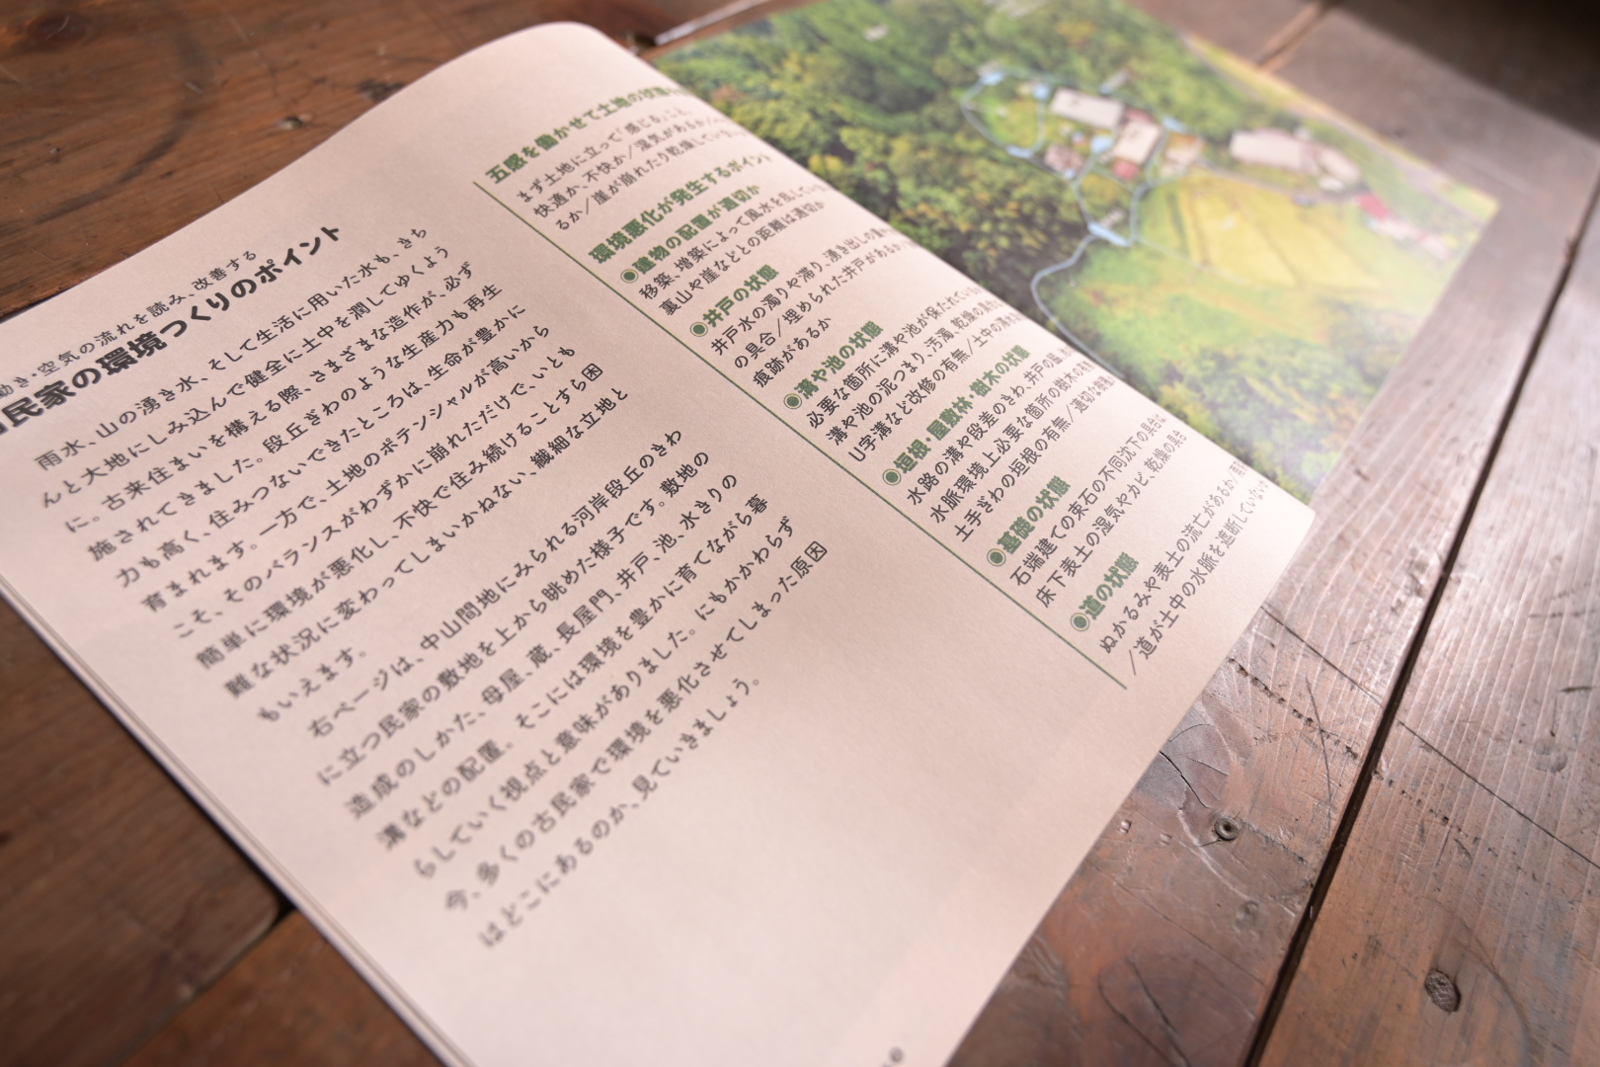 動き・空気の流れを読み、改善する
民家の環境づくりのポイント
雨水、山の湧き水、そして生活に用いた水も、きち
んと大地にしみ込んで健全に土中を潤してゆくよう
に。古来住まいを構える際、さまざまな造作が、必ず
施されてきました。段丘ぎわのような生産力も再生
力も高く、住みつないできたところは、生命が豊かに
育まれます。一方で、土地のポテンシャルが高いから
こそ、そのバランスがわずかに崩れただけで、いとも
簡単に環境が悪化し、不快で住み続けることすら困
難な状況に変わってしまいかねない、繊細な立地と
もいえます。
右ページは、中山間地にみられる河岸段丘のきわ
に立つ民家の敷地を上から眺めた様子です。敷地の
造成のしかた、母屋、蔵、長屋門、井戸、池、水きりの
溝などの配置。そこには環境を豊かに育てながら暮
らしていく視点と意味がありました。にもかかわらず
今、多くの古民家で環境を悪化させてしまった原因
はどこにあるのか、見ていきましょう。
五感を働かせて土地の状態
まず土地に立って「感じる」こと。
快適か、不快か/湿気があるか
るか/崖が崩れたり乾燥してい
環境悪化が発生するポイント
◉建物の配置が適切か
移築、増築によって風水を乱してい
裏山や崖などとの距離は適切か
◉井戸の状態
井戸水の濁りや滞り、湧き出しの
の具合/埋められた井戸があるか
痕跡があるか
◉溝や池の状態
必要な箇所に溝や池が保たれている
溝や池の泥つまり、汚濁、乾燥の具合
U字溝など改修の有無/土中の
◉垣根・屋敷林・樹木の状態
水路の溝や段差のきわ、井戸の
水脈環境上必要な箇所の樹木の
土手ぎわの垣根の有無/適切な
◉基礎の状態
石端建ての束石の不同沈下の具合
床下表土の湿気やカビ、乾燥の具合
◉道の状態
ぬかるみや表土の流亡があるか
/道が土中の水脈を遮断していない